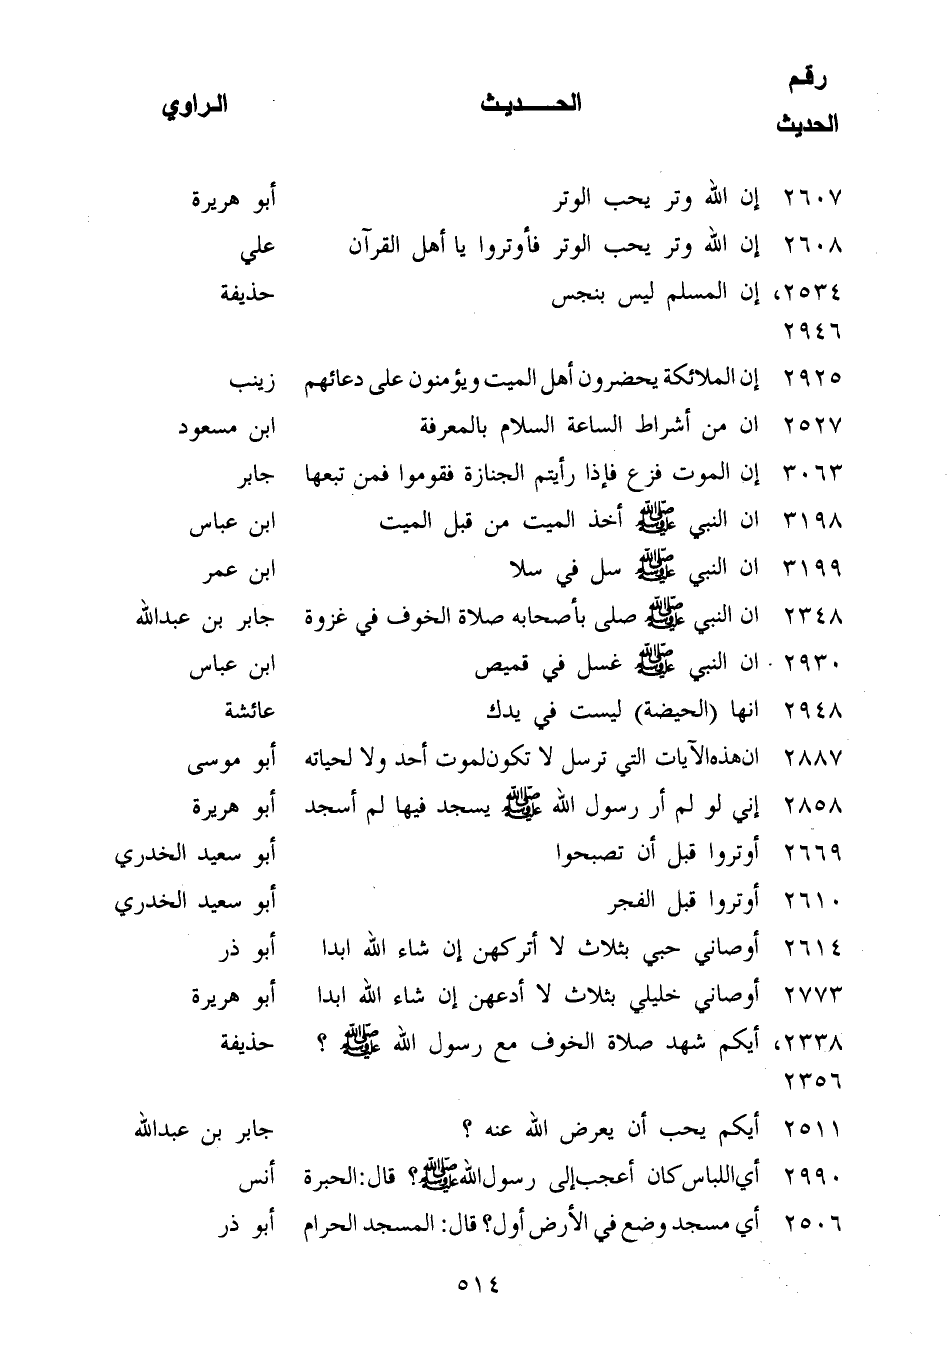 رقم الحديث الحـــديث الراوي
٢٦٠٧ إن الله وتر يحب الوتر أبو هريرة
٢٦٠٨ إن الله وتر يحب الوتر فأوتروا يا أهل القرآن علي
٢٥٣٤، إن المسلم ليس بنجس حذيفة
٢٩٤٦
٢٩٢٥ إن الملائكة يحضرون أهل الميت ويؤمنون على دعائهم زينب
٢٥٢٧ ان من أشراط الساعة السلام بالمعرفة ابن مسعود
٣٠٦٣ إن الموت فزع فإذا رأيتم الجنازة فقوموا فمن تبعها جابر
٣١٩٨ ان النبي ﷺ أخذ الميت من قبل الميت ابن عباس
٣١٩٩ ان النبي ﷺ سل في سلا ابن عمر
٢٣٤٨ ان النبي ﷺ صلى بأصحابه صلاة الخوف في غزوة جابر بن عبدالله
٢٩٣٠ ان النبي ﷺ غسل في قميص ابن عباس
٢٩٤٨ انها (الحيضة) ليست في يدك عائشة
٢٨٨٧ ان هذه الآيات التي ترسل لا تكون لموت أحد ولا لحياته أبو موسى
٢٨٥٨ إني لو لم أر رسول الله ﷺ يسجد فيها لم أسجد أبو هريرة
٢٦٦٩ أوتروا قبل أن تصبحوا أبو سعيد الخدري
٢٦١٠ أوتروا قبل الفجر أبو سعيد الخدري
٢٦١٤ أوصاني حبي بثلاث لا أتركهن إن شاء الله ابدا أبو ذر
٢٧٧٣ أوصاني خليلي بثلاث لا أدعهن إن شاء الله ابدا أبو هريرة
٢٣٣٨، أيكم شهد صلاة الخوف مع رسول الله ﷺ ؟ حذيفة
٢٣٥٦
٢٥١١ أيكم يحب أن يعرض الله عنه ؟ جابر بن عبدالله
٢٩٩٠ أي اللباس كان أعجب إلى رسول الله ﷺ؟ قال: الحبرة أنس
٢٥٠٦ أي مسجد وضع في الأرض أول؟ قال: المسجد الحرام أبو ذر
٥١٤